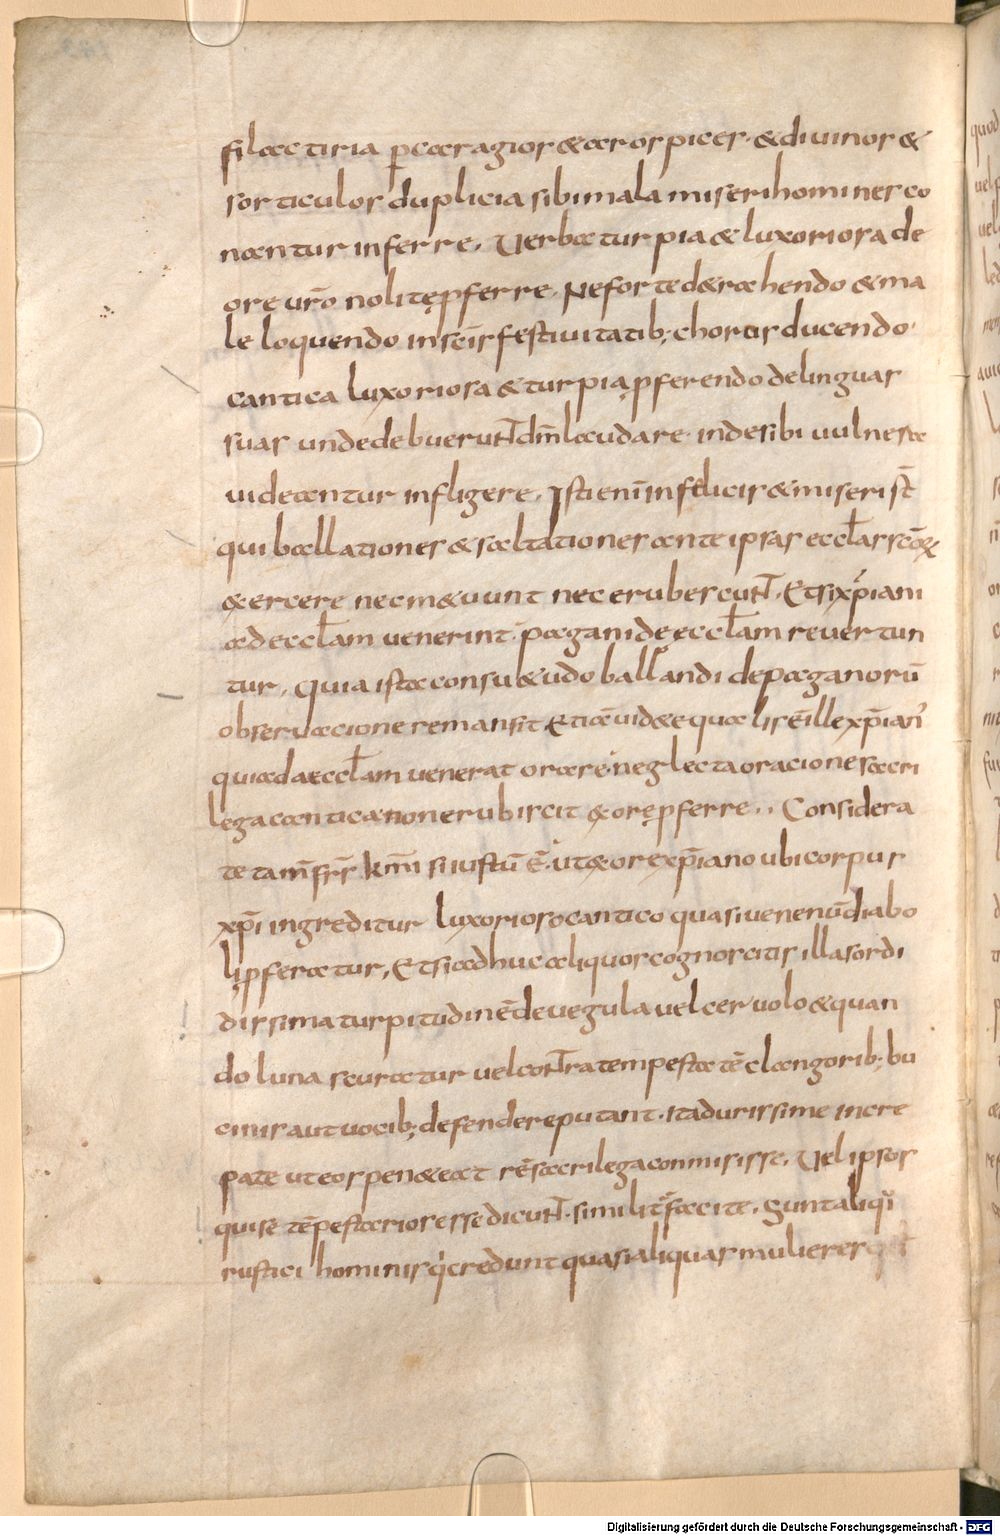 filacтiria p caragios & aruspices & divinos &
sorticulos duplicia sibi mala miseri homines co
nantur inferre. Verba turpia & luxoriosa de
ore vr̄o nolite ꝑferre. Ne forte d&rahendo & ma
le loquendo in sc̄is festivitatib; choris ducendo
cantica luxoriosa & turpia ꝓferendo de linguas
suas unde debuerunt dm̄ laudare inde sibi vulnera
uideantur infligere. Isti enī infelicis & miseri st̄
qui ballationes & saltationes ante ipsas eccłas scōꝝ
& ercere nec m&uunt nec erubescunt. Et si xp̄iani
ad eccłam venerint pagani de eccłam revertun
tur. Quia ista consu&udo ballandi de paganorū
observacione remansit Etiā vid&e qualis ē ille xp̄ian'
qui ad aeccłam venerat orare neglecta oracione sacri
lega cantica non erubiscit & ore ꝓferre. Considera
te tam̄ fr̄s km̄i si iustū ē ut & ore xp̄iano ubi corpus
xp̄i ingreditur luxorioso cantico quasi venenū diabo
li ꝓferatur. Et si adhuc aliquos cognoscitis illa sordi
dissima turpitudinē de vegula vel cervolo & quan
do luna scuratur vel contra tempestatē clangorib; bu
cinis aut vocib; defendere putant. ita durissime incre
pate ut eos peniteat rē sacrilega conmisisse. Vel ipsos
qui se tēpestarios esse dicunt similit̄ facite. Sunt aliqi
rustici hominis q̇ credunt quasi aliquas mulieres
Digitalisierung gefördert durch die Deutsche Forschungsgemeinschaft - DFG